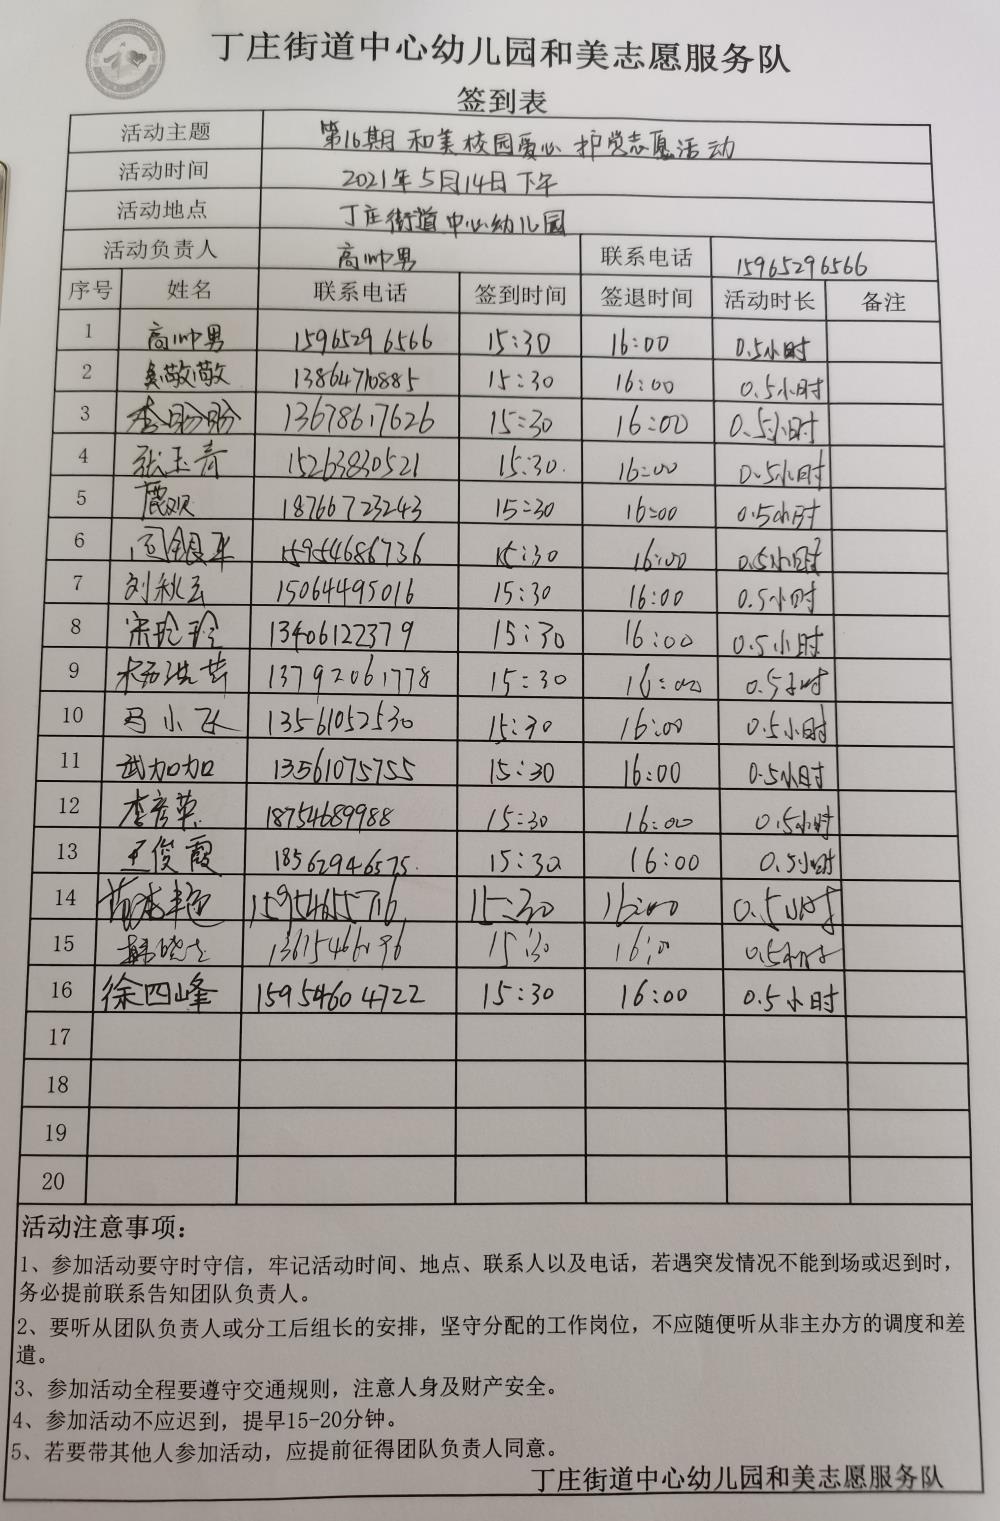 丁庄街道中心幼儿园和美志愿服务队
签到表
活动主题 第16期和美校园爱心护学志愿活动
活动时间 2021年5月14日下午
活动地点 丁庄街道中心幼儿园
活动负责人 高帅男 联系电话 15965296566
序号 姓名 联系电话 签到时间 签退时间 活动时长 备注
1 高帅男 15965296566 15:30 16:00 0.5小时
2 敬敬 13864710885 15:30 16:00 0.5小时
3 李盼盼 13678617626 15:30 16:00 0.5小时
4 张玉青 15263830521 15:30 16:00 0.5小时
5 18766723243 15:30 16:00 0.5小时
6 15954686736 15:30 16:00 0.5小时
7 刘秋云 15064495016 15:30 16:00 0.5小时
8 宋玲玲 13406122379 15:30 16:00 0.5小时
9 13792061778 15:30 16:00 0.5小时
10 马小飞 13561052530 15:30 16:00 0.5小时
11 武加加 13561075755 15:30 16:00 0.5小时
12 李彦英 18754689988 15:30 16:00 0.5小时
13 王俊霞 18562946575 15:30 16:00 0.5小时
14 15:30 16:00 0.5小时
15 15:30 16:00 0.5小时
16 徐四峰 15954604722 15:30 16:00 0.5小时
17
18
19
20
活动注意事项：
1、参加活动要守时守信，牢记活动时间、地点、联系人以及电话，若遇突发情况不能到场或迟到时，
务必提前联系告知团队负责人。
2、要听从团队负责人或分工后组长的安排，坚守分配的工作岗位，不应随便听从非主办方的调度和差
遣。
3、参加活动全程要遵守交通规则，注意人身及财产安全。
4、参加活动不应迟到，提早15-20分钟。
5、若要带其他人参加活动，应提前征得团队负责人同意。
丁庄街道中心幼儿园和美志愿服务队